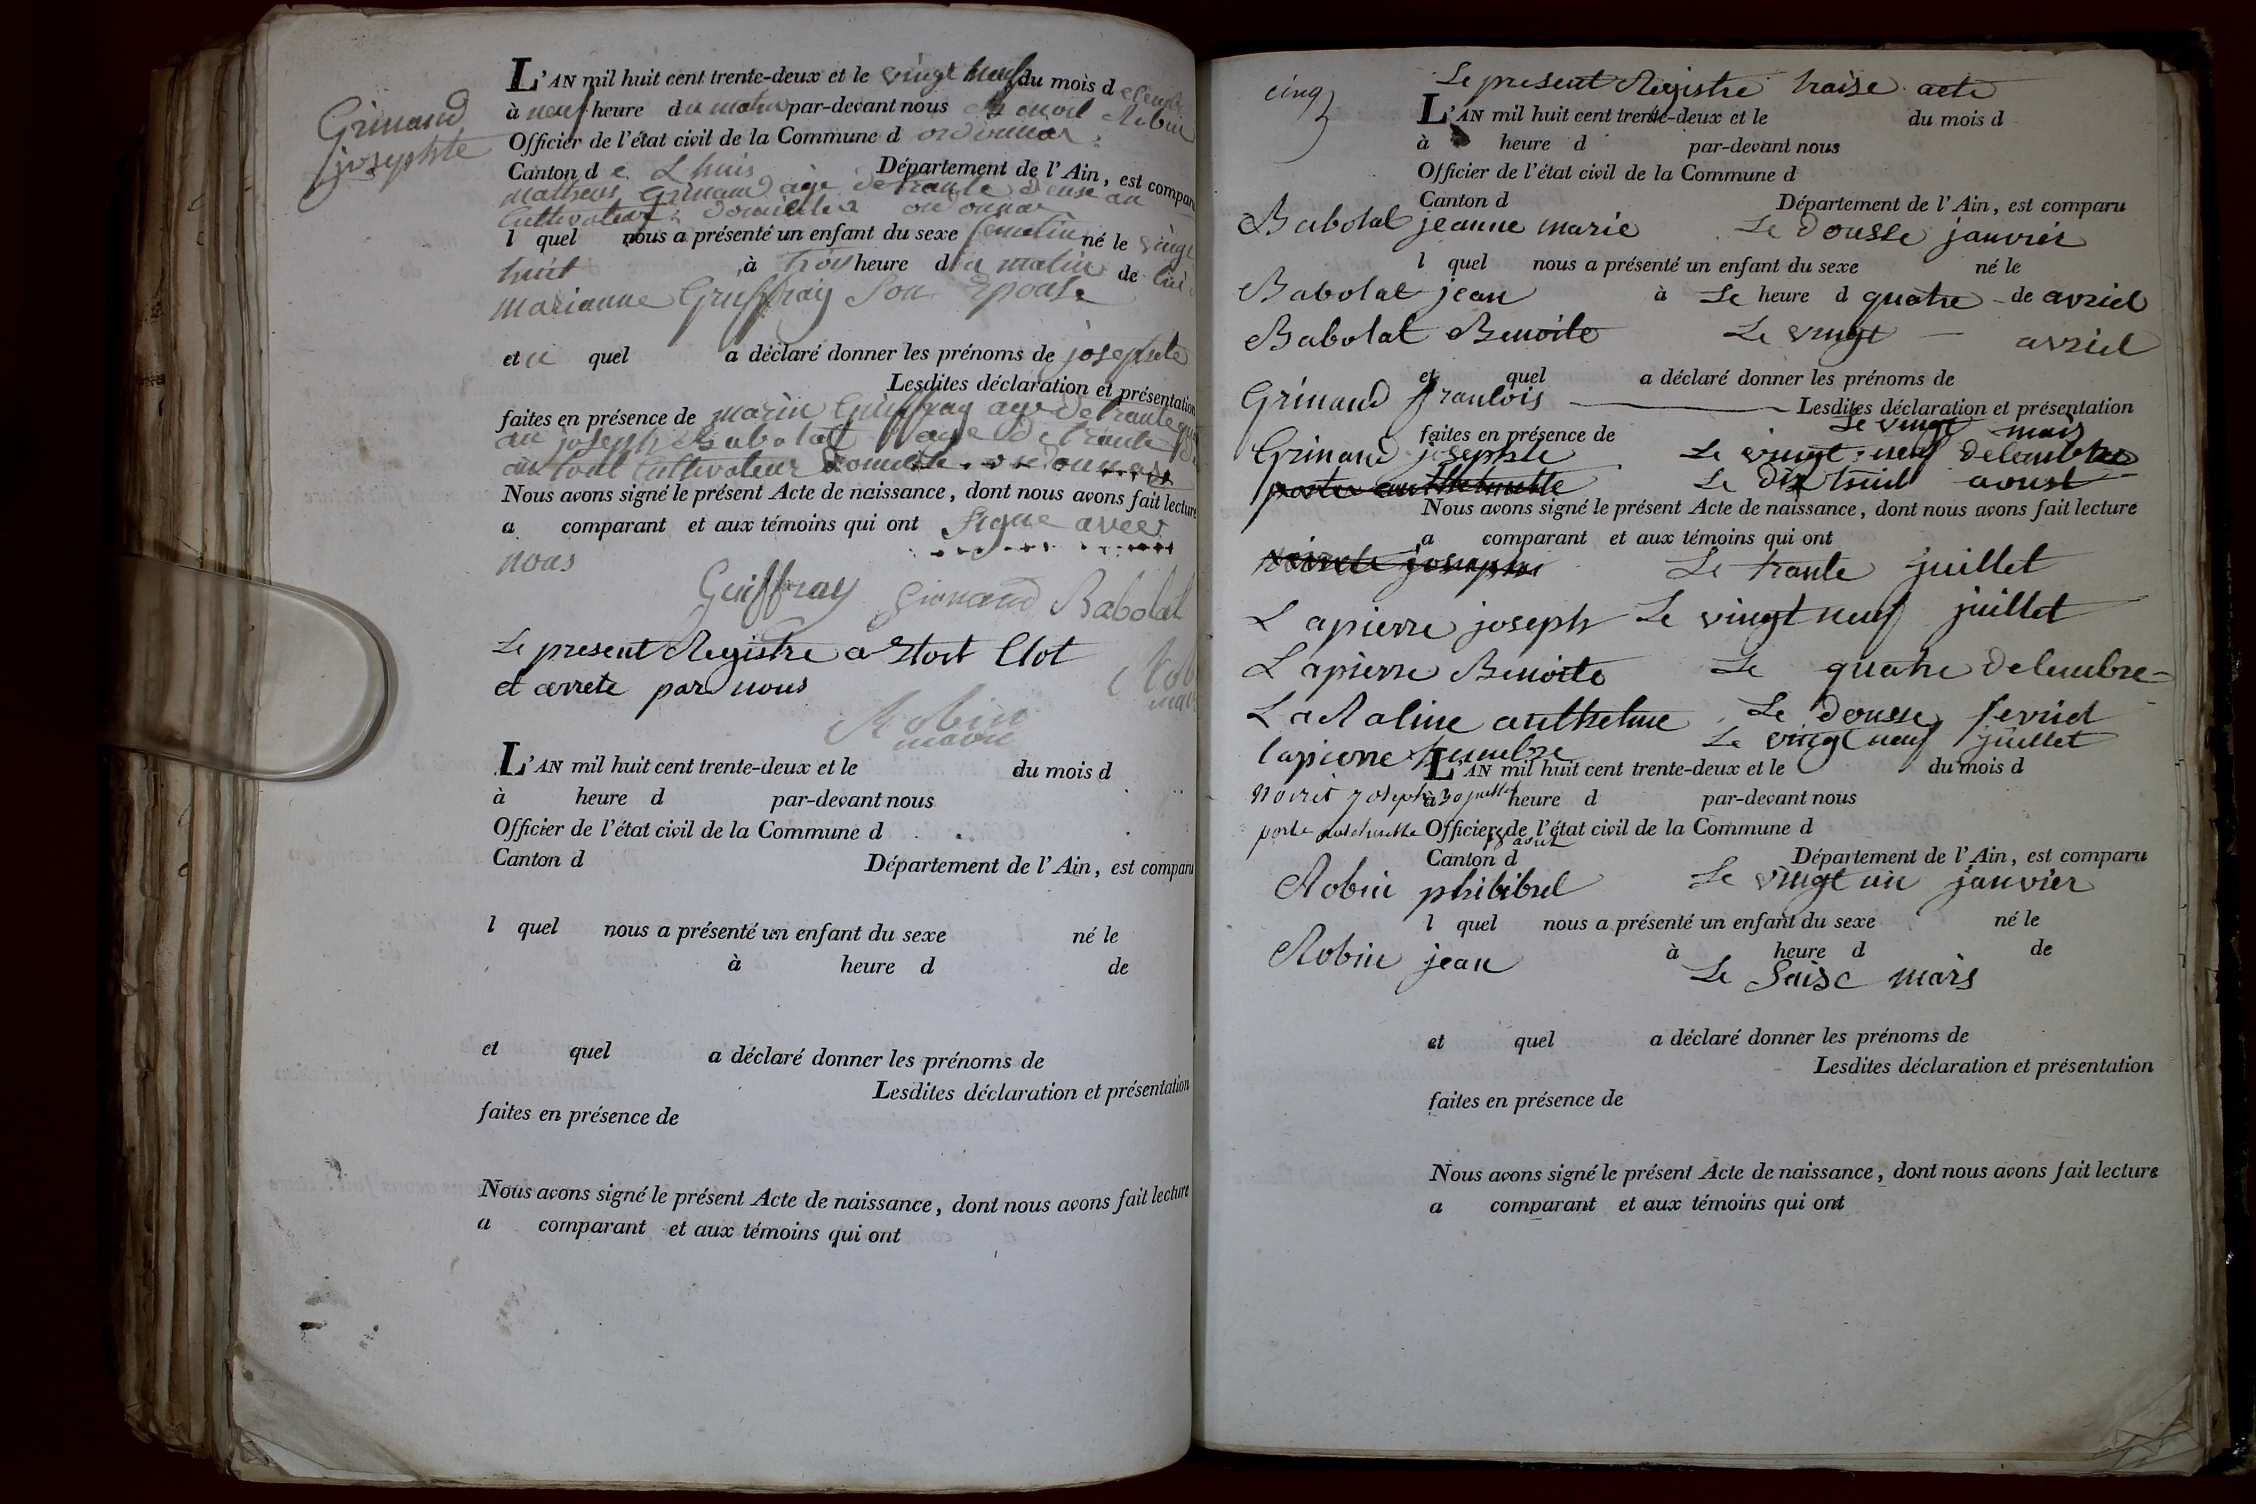 Grinand
josephte
L'AN mil huit cent trente-deux et le vingt neuf du mois d
à neuf heure du matin par-devant nous Benoit Robin
Officier de l'état civil de la Commune d ordonnas
Canton de Lhuis Département de l'Ain, est comparu
matheus Grinand age de trante deuse an
Cultivateur domicilier ordonnas
l quel nous a présenté un enfant du sexe femelin né le vingt
huit à trois heure du matin de lui
marianne Guiffray Son Epouse
et le quel a déclaré donner les prénoms de josephte
Lesdites déclaration et présentation
faites en présence de marin Guiffray age de trante
an joseph Babolat age de trante
an tout Cultivateur domicilie ordonnas
Nous avons signé le présent Acte de naissance, dont nous avons fait lecture
a comparant et aux témoins qui ont signe avec
nous
Guiffray Grinand Babolat
Le present Registre a Etort Clot
et arrete par nous
Robin
maire
L'AN mil huit cent trente-deux et le du mois d
à heure d par-devant nous
Officier de l'état civil de la Commune d
Canton d Département de l'Ain, est comparu
l quel nous a présenté un enfant du sexe né le
à heure d de
et quel a déclaré donner les prénoms de
Lesdites déclaration et présentation
faites en présence de
Nous avons signé le présent Acte de naissance, dont nous avons fait lecture
a comparant et aux témoins qui ont
cinq
Le present Registre traise acte
L'AN mil huit cent trente-deux et le du mois d
à heure d par-devant nous
Officier de l'état civil de la Commune d
Canton d Département de l'Ain, est comparu
Babolat jeanne marie Le dousse janvier
l quel nous a présenté un enfant du sexe né le
Babolat jean à Le heure d quatre de avriel
Babolat Benoite Le vingt avriel
et quel a déclaré donner les prénoms de
Grinand francois Lesdites déclaration et présentation
Le vingt mais
faites en présence de
Grinand josephte Le vingt neuf decembre
Le dix huit aoust
Nous avons signé le présent Acte de naissance, dont nous avons fait lecture
a comparant et aux témoins qui ont
Le trante juillet
Lapierre joseph Le vingt neuf juillet
Lapierre Benoite Le quatre decembre
LaRaline anthelme Le dousse fevriel
lapierre Le vingt neuf juillet
L'AN mil huit cent trente-deux et le du mois d
Noiret joseph 30 juillet à heure d par-devant nous
Officier de l'état civil de la Commune d
18 aout
Canton d Département de l'Ain, est comparu
Robin philibrel Le vingt un janvier
l quel nous a présenté un enfant du sexe né le
Robin jean à heure d de
Le Saise mars
et quel a déclaré donner les prénoms de
Lesdites déclaration et présentation
faites en présence de
Nous avons signé le présent Acte de naissance, dont nous avons fait lecture
a comparant et aux témoins qui ont